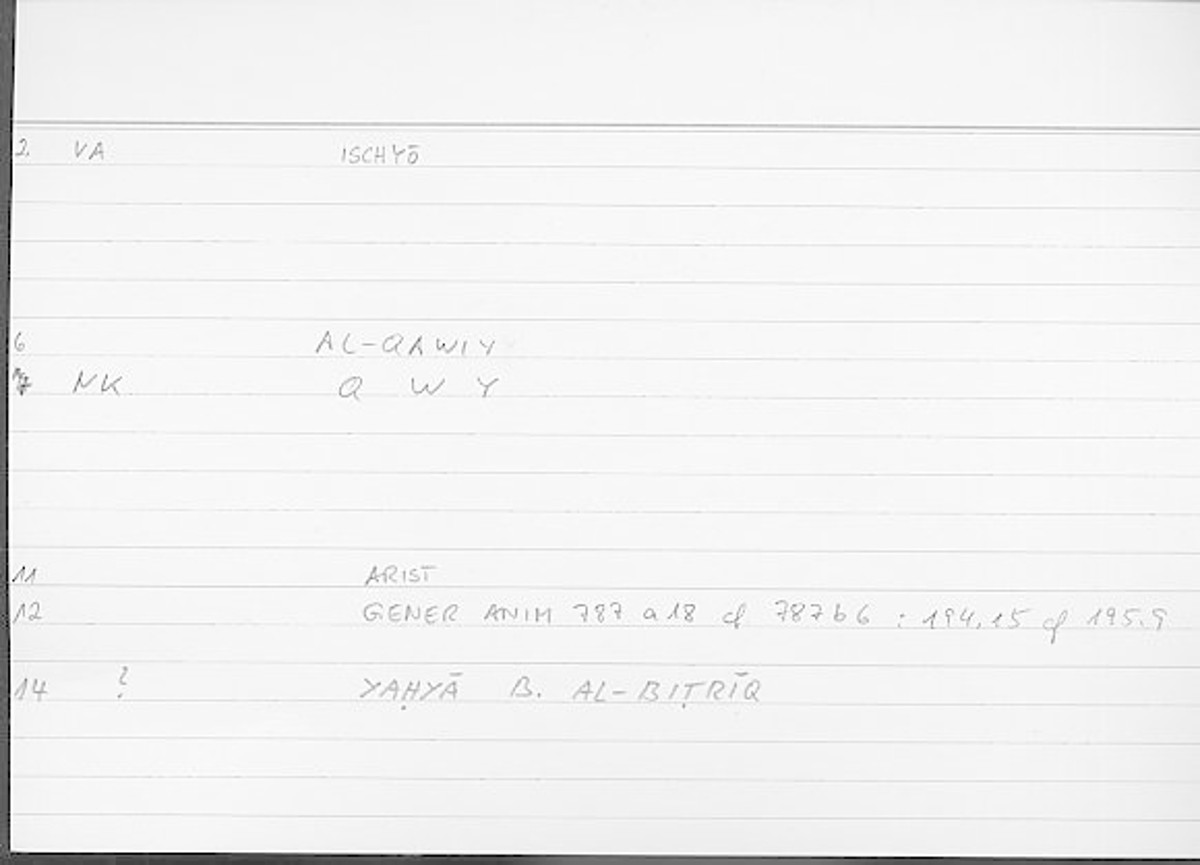 2. VA ISCHYŌ
6 AL-QAWIY
7 NK Q W Y
11 ARIST
12 GENER ANIM 787 a 18 cf 787 b 6 : 194,15 cf 195.9
14 ? YAḤYĀ B. AL-BIṬRĪQ